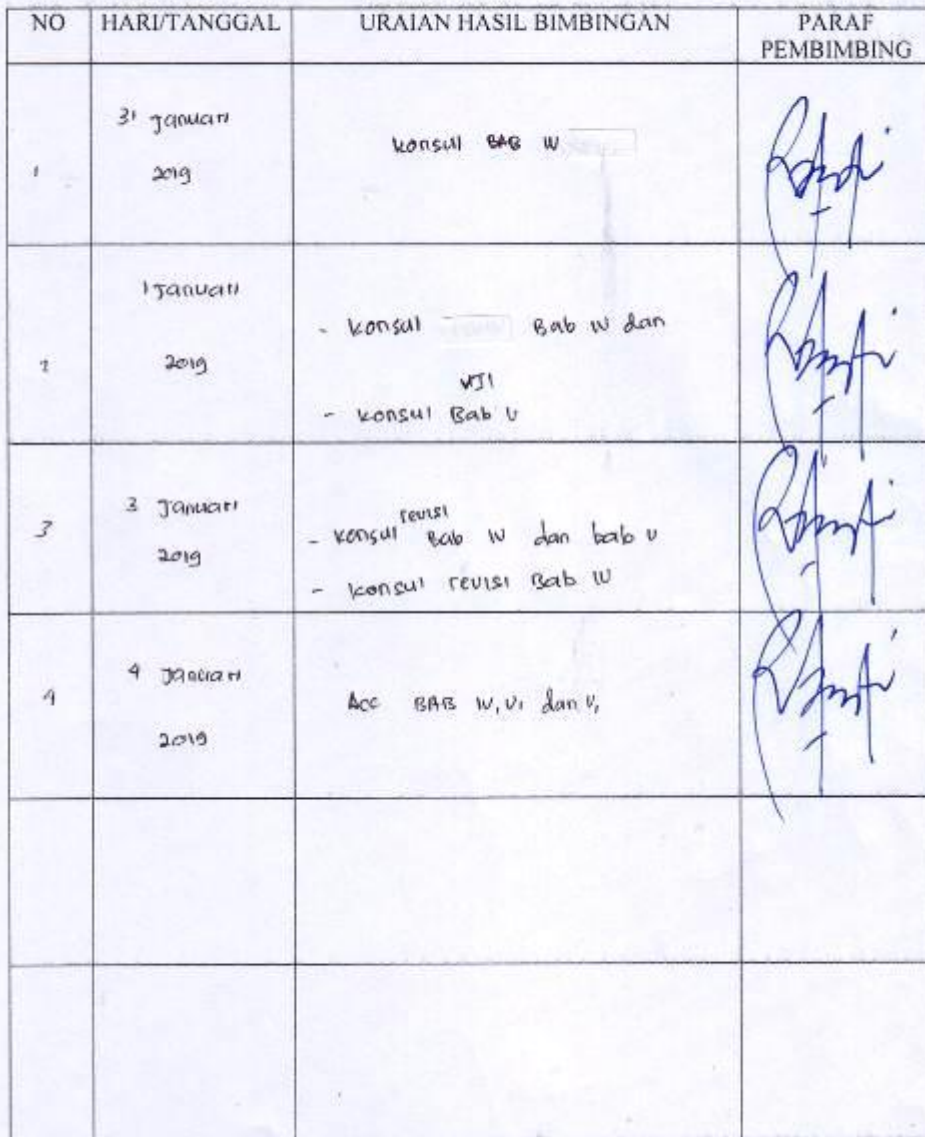 NO HARI/TANGGAL URAIAN HASIL BIMBINGAN PARAF PEMBIMBING
1 31 Januari 2019 konsul BAB IV
2 1 Januari 2019 - konsul Bab IV dan
- konsul Bab V
3 3 Januari 2019 - konsul revisi Bab IV dan bab V
- konsul revisi Bab IV
4 4 Januari 2019 Acc BAB IV, VI dan V,